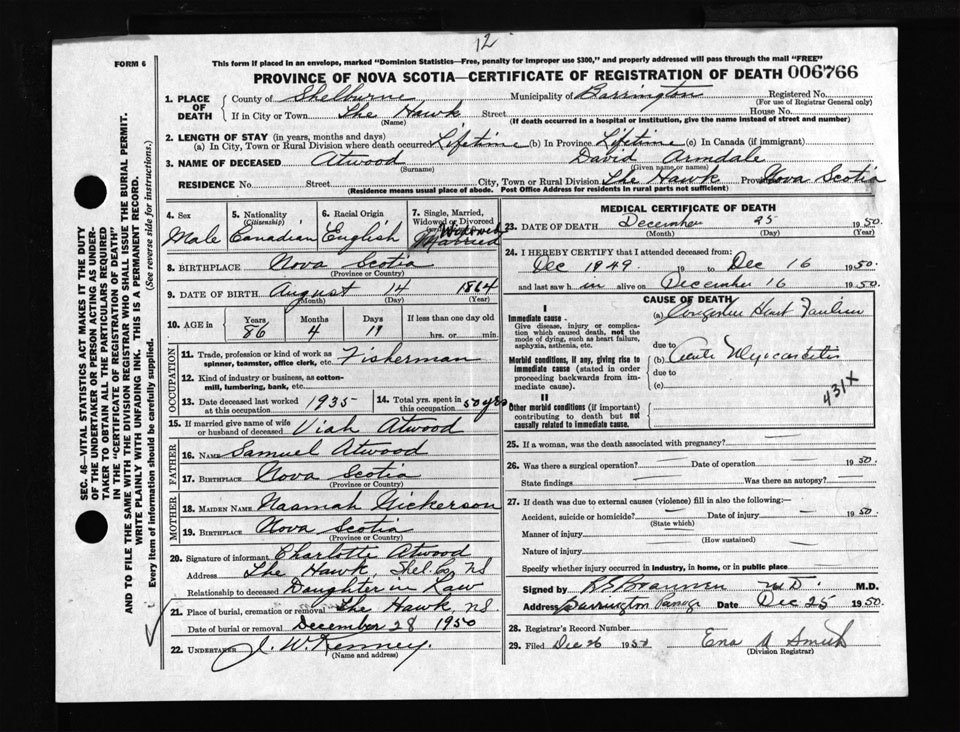 12
FORM 6
This form if placed in an envelope, marked "Dominion Statistics—Free, penalty for improper use $300," and properly addressed will pass through the mail "FREE"
PROVINCE OF NOVA SCOTIA—CERTIFICATE OF REGISTRATION OF DEATH 006766
SEC. 46—VITAL STATISTICS ACT MAKES IT THE DUTY
OF THE UNDERTAKER OR PERSON ACTING AS UNDER-
TAKER TO OBTAIN ALL THE PARTICULARS REQUIRED
IN THE "CERTIFICATE OF REGISTRATION OF DEATH"
AND TO FILE THE SAME WITH THE DIVISION REGISTRAR WHO SHALL ISSUE THE BURIAL PERMIT.
WRITE PLAINLY WITH UNFADING INK. THIS IS A PERMANENT RECORD.
Every item of information should be carefully supplied. (See reverse side for instructions.)
1. PLACE OF DEATH County of Shelburne Municipality of Barrington Registered No.
(For use of Registrar General only)
If in City or Town The Hawk Street House No.
(Name) (If death occurred in a hospital or institution, give the name instead of street and number)
2. LENGTH OF STAY (in years, months and days)
(a) In City, Town or Rural Division where death occurred Lifetime (b) In Province Lifetime (c) In Canada (if immigrant)
3. NAME OF DECEASED Atwood David Armdale
(Surname) (Given name or names)
RESIDENCE No. Street City, Town or Rural Division The Hawk Province Nova Scotia
(Residence means usual place of abode. Post Office Address for residents in rural parts not sufficient)
4. Sex
Male
5. Nationality
(Citizenship)
Canadian
6. Racial Origin
English
7. Single, Married,
Widowed or Divorced
Widowed
Married
8. BIRTHPLACE Nova Scotia
(Province or Country)
9. DATE OF BIRTH August 14 1864
(Month) (Day) (Year)
10. AGE in Years Months Days If less than one day old
86 4 11 hrs. or min.
OCCUPATION
11. Trade, profession or kind of work as
spinner, teamster, office clerk, etc. Fisherman
12. Kind of industry or business, as cotton-
mill, lumbering, bank, etc.
13. Date deceased last worked
at this occupation 1935
14. Total yrs. spent in
this occupation 50 yrs
15. If married give name of wife
or husband of deceased Viah Atwood
FATHER
16. Name Samuel Atwood
17. Birthplace Nova Scotia
(Province or Country)
MOTHER
18. Maiden Name Naamah Nickerson
19. Birthplace Nova Scotia
(Province or Country)
20. Signature of informant Charlotte Atwood
Address The Hawk, Shel. Co. N.S
Relationship to deceased Daughter in Law
21. Place of burial, cremation or removal The Hawk N.S.
Date of burial or removal December 28 1950
22. Undertaker J. W. Kenney.
(Name and address)
MEDICAL CERTIFICATE OF DEATH
23. DATE OF DEATH December 25 1950
(Month) (Day) (Year)
24. I HEREBY CERTIFY that I attended deceased from:
Dec 1949 19 to Dec 16 1950.
and last saw h im alive on December 16 1950.
CAUSE OF DEATH
I
Immediate cause
Give disease, injury, or complica-
tion which caused death, not the
mode of dying, such as heart failure,
asphyxia, asthenia, etc.
(a) Congestive Heart Failure
due to
Morbid conditions, if any, giving rise to
immediate cause (stated in order
proceeding backwards from im-
mediate cause).
(b) Acute Myocarditis
due to
(c)
431X
II
Other morbid conditions (if important)
contributing to death but not
causally related to immediate cause.
25. If a woman, was the death associated with pregnancy?
26. Was there a surgical operation? Date of operation 1950.
State findings Was there an autopsy?
27. If death was due to external causes (violence) fill in also the following:—
Accident, suicide or homicide? Date of injury 1950.
(State which)
Manner of injury
(How sustained)
Nature of injury
Specify whether injury occurred in industry, in home, or in public place
Signed by M.D. M.D.
Address Barrington Passage Date Dec 25 1950.
28. Registrar's Record Number
29. Filed Dec 26 1950 Ena Smith
(Division Registrar)